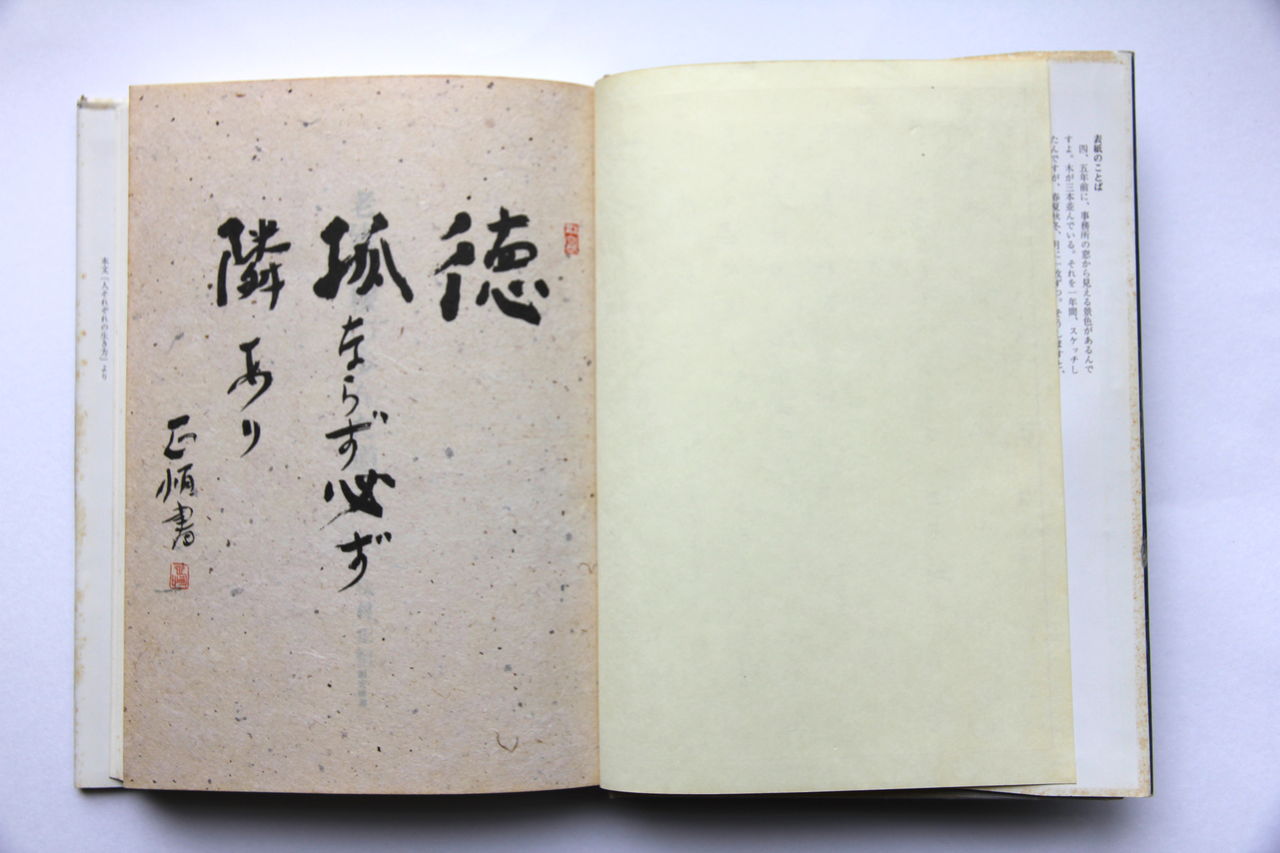 表紙のことば
四、五年前に、事務所の窓から見える景色があるんで
すよ。木が三本並んでいる。それを一年間、スケッチし
たんですが、春夏秋冬、
徳
孤ならず必ず
隣あり
正恒書
本文「人それぞれの生き方」より